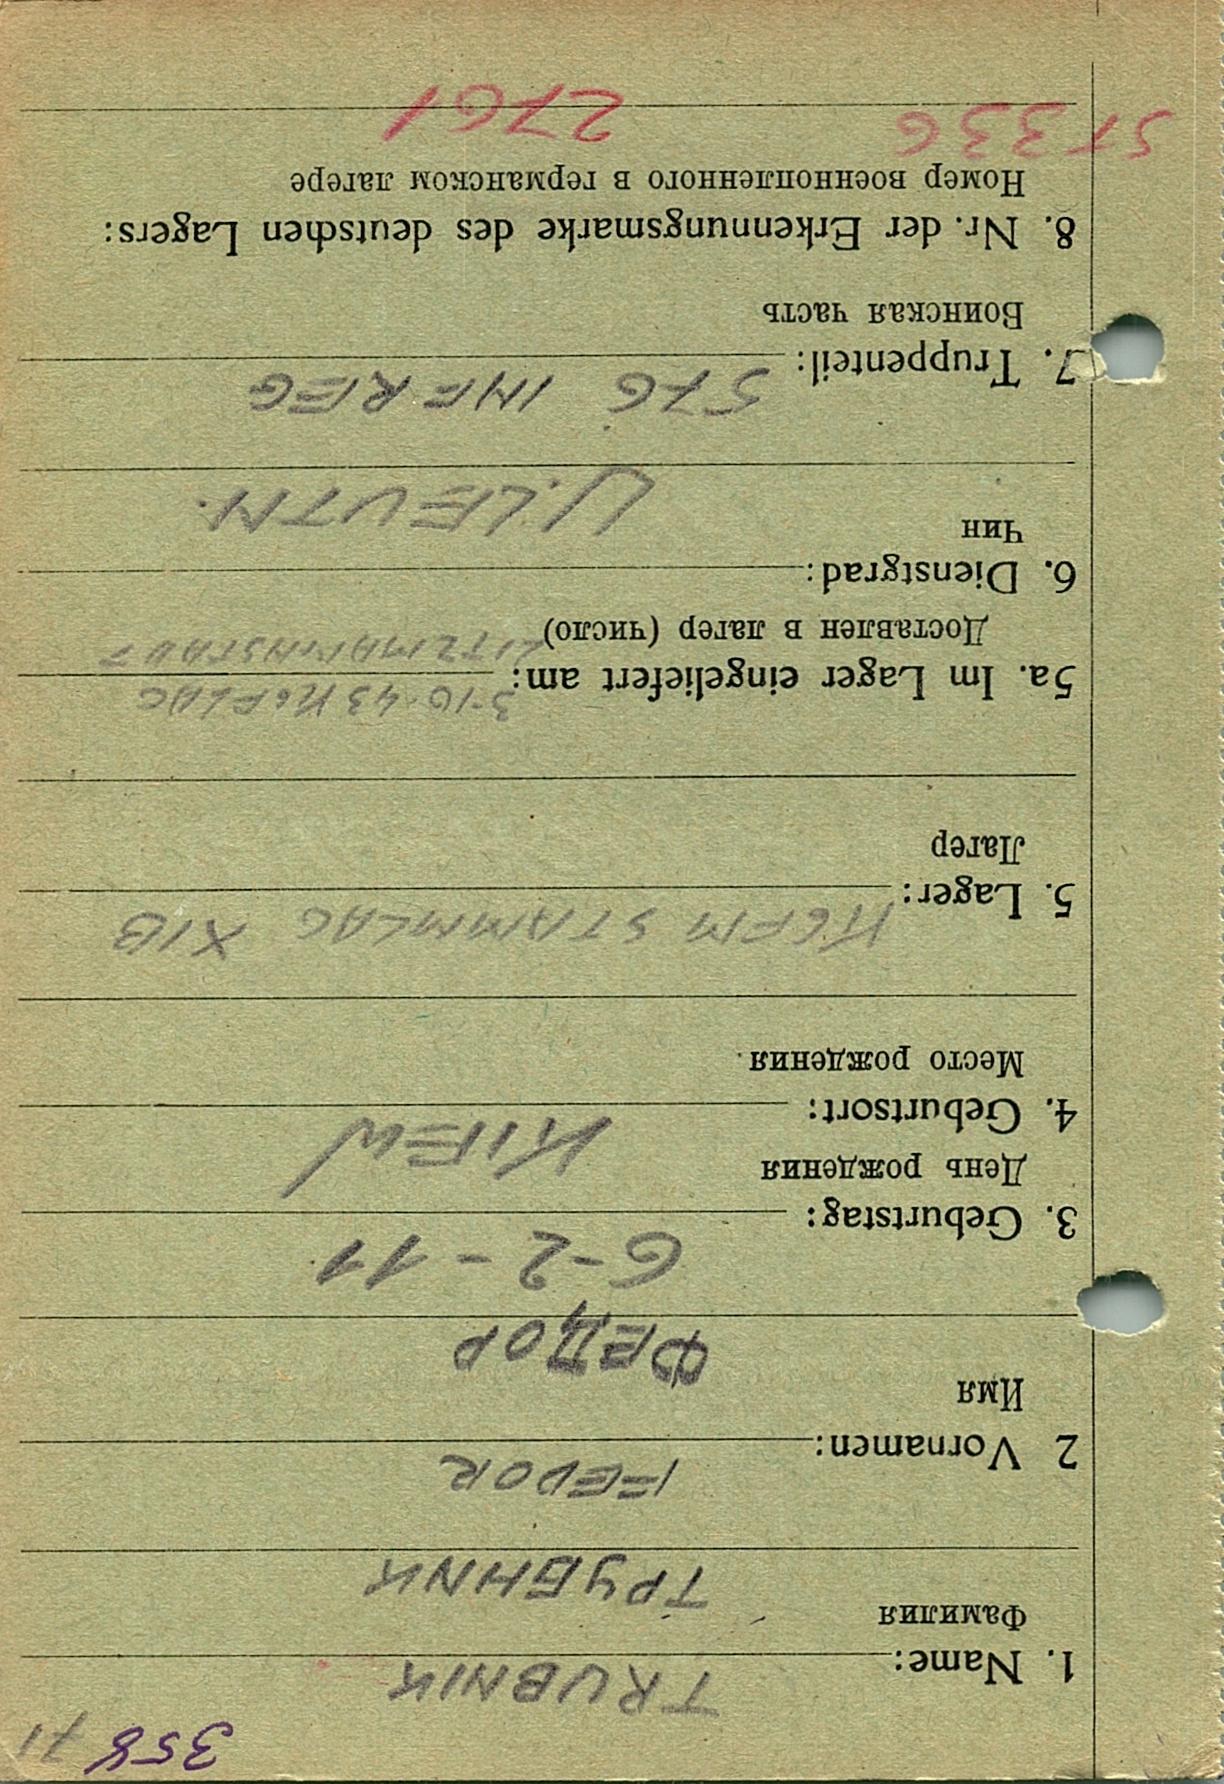 358 71
1. Name: TRUBNIK
Фамилия
ТРУБНИК
2 Vornamen: FEDOR
Имя
ФЕДОР
3. Geburtstag: 6-2-11
День рождения
4. Geburtsort: KIEW
Место рождения
5. Lager: STAMMLAG XIB
Лагер
5a. Im Lager eingeliefert am: 3-10-43
Доставлен в лагер (число) LITZMANNSTADT
6. Dienstgrad:
Чин
U.LEUTN.
7. Truppenteil: 576 INF REG
Воинская часть
8. Nr. der Erkennungsmarke des deutschen Lagers:
Номер военнопленного в германском лагере
ST 336 2761